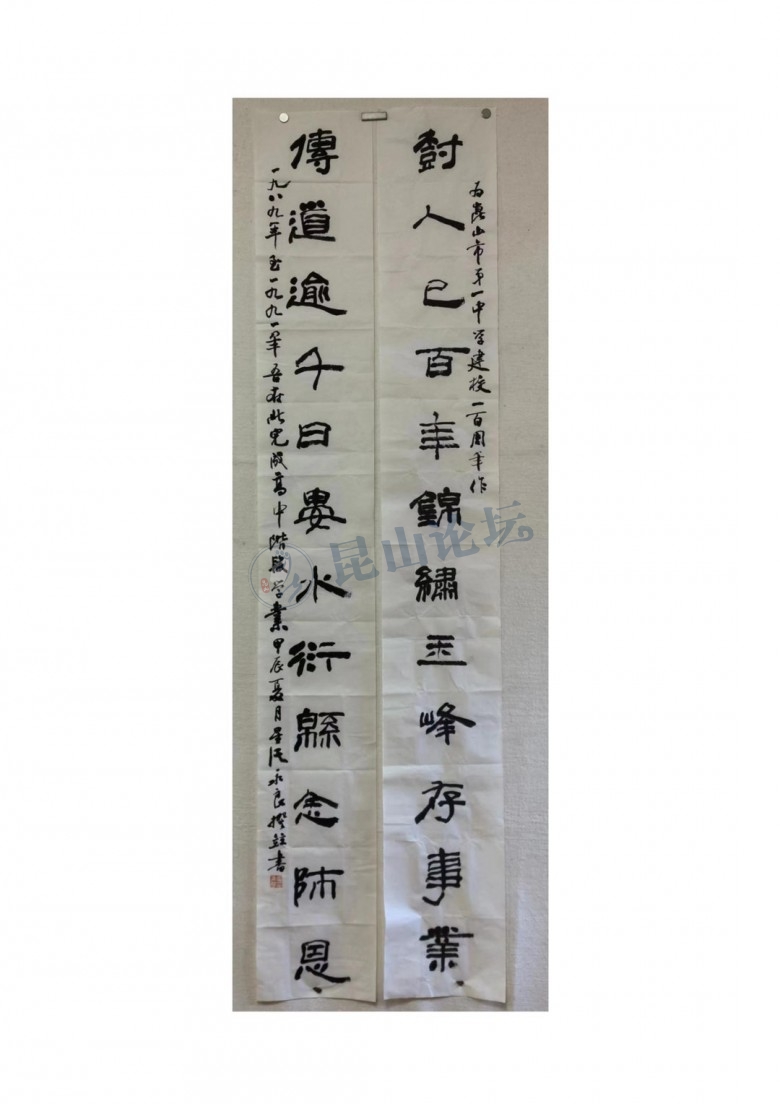 为崑山市第一中学建校一百周年作
尌人已百年錦繡玉峰存事業
傳道逾千日婁水衍緜念師恩
一九八九年至一九九一年吾在此完成高中階段学業甲辰夏月永良撰並書
昆山论坛